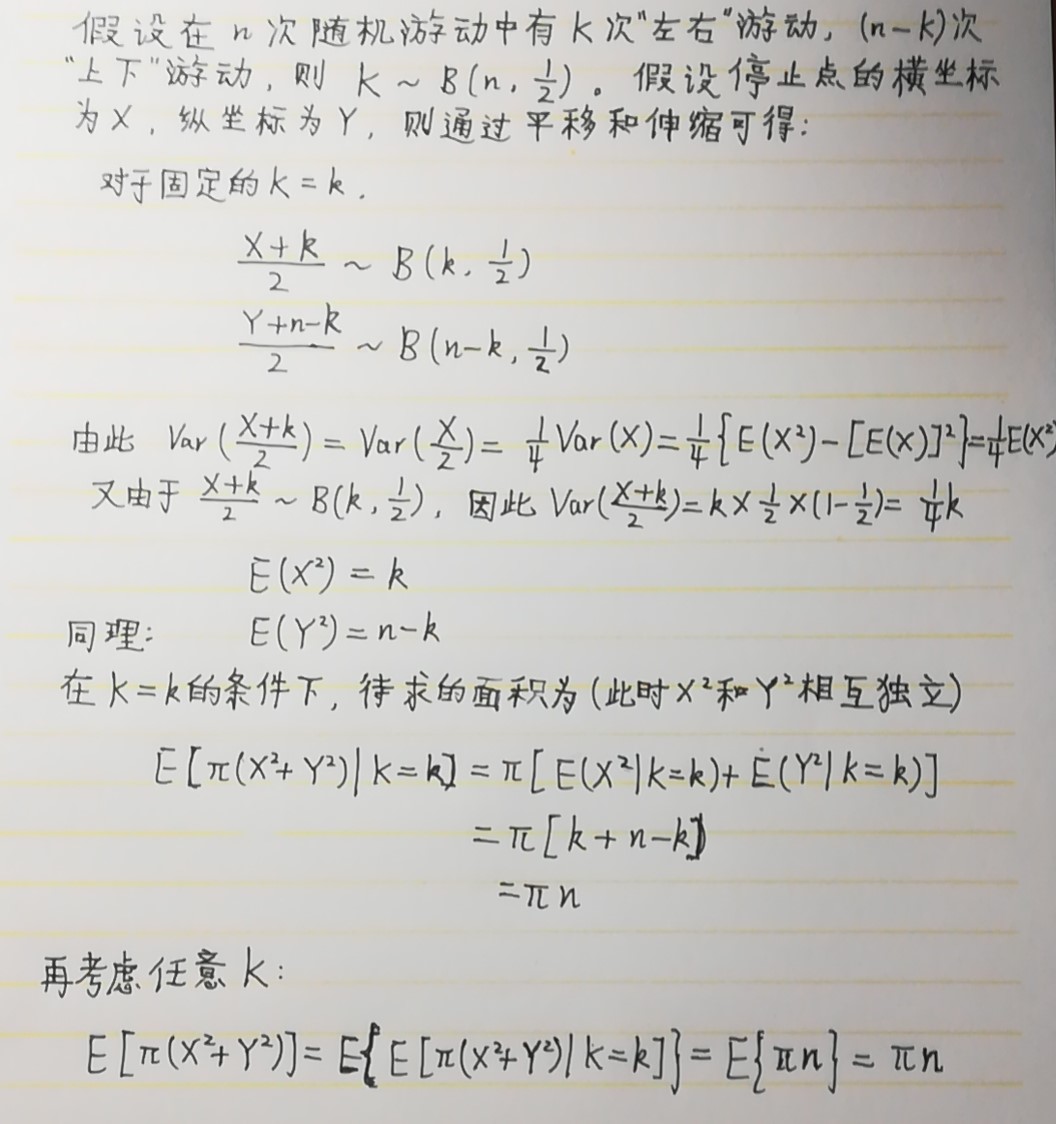 假设在 n 次随机游动中有 K 次“左右”游动，(n-K)次
“上下”游动，则 K ~ B(n, 1/2)。假设停止点的横坐标
为X，纵坐标为Y，则通过平移和伸缩可得：
对于固定的 K = k，
(X+k)/2 ~ B(k, 1/2)
(Y+n-k)/2 ~ B(n-k, 1/2)
由此 Var((X+k)/2) = Var(X/2) = 1/4 Var(X) = 1/4 {E(X²) - [E(X)]²} = 1/4 E(X²)
又由于 (X+k)/2 ~ B(k, 1/2)，因此 Var((X+k)/2) = k × 1/2 × (1 - 1/2) = 1/4 k
E(X²) = k
同理： E(Y²) = n-k
在 K = k 的条件下，待求的面积为 (此时 X² 和 Y² 相互独立)
E[π(X²+Y²)|K=k] = π[E(X²|K=k) + E(Y²|K=k)]
= π[k + n-k]
= πn
再考虑任意 K：
E[π(X²+Y²)] = E{E[π(X²+Y²)|K=k]} = E{πn} = πn